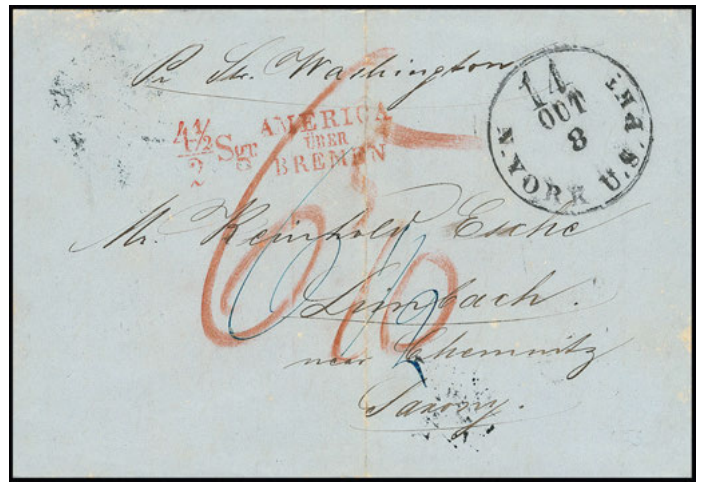 Pr Str. Washington
14
OCT
8
N. YORK U.S. PKT
4½
2
Sgr
AMERICA
ÜBER
BREMEN
Mr. Reinhold Esche
Limbach.
near Chemnitz
Saxony.